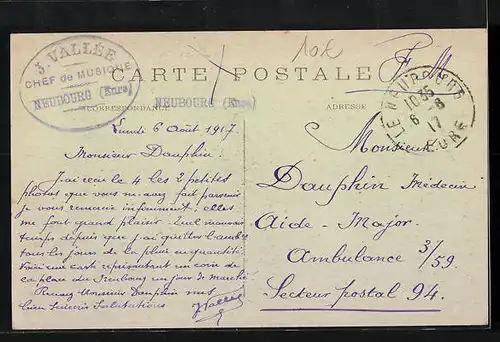 J. VALLÉE
CHEF de MUSIQUE
NEUBOURG (Eure)
10k
F. M.
CARTE POSTALE
CORRESPONDANCE
NEUBOURG (Eure)
ADRESSE
LE NEUBOURG
10 35
6 - 8
17
EURE
Lundi 6 Août 1917
Monsieur Dauphin.
J'ai reçu le 4 les 2 petites
photos que vous m'avez fait parvenir
je vous remercie infiniment, elles
me font grand plaisir. Quel mauvais
temps depuis que j'ai quitté
tous les jours de la pluie en quantité.
Voici une carte représentant un coin de
la place du Neubourg un jour de marché
Recevez Monsieur Dauphin mes
bien sincères Salutations
JVallée
Monsieur
Dauphin Médecin
Aide-Major
Ambulance 3/59.
Secteur postal 94.